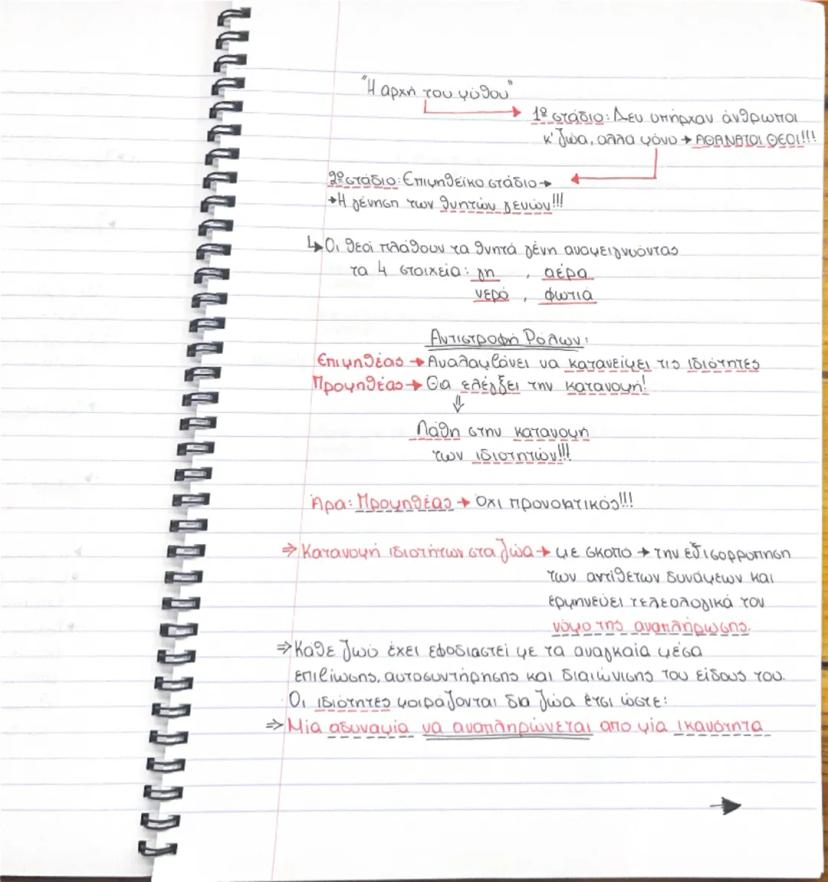 "Η αρχή του μύθου"
1º στάδιο: Δεν υπήρχαν άνθρωποι
κ' ζώα, αλλα μόνο → ΑΘΑΝΑΤΟΙ ΘΕΟΙ!!!
2º στάδιο: Επιμηθεϊκο στάδιο →
→ Η γένηση των θνητών γενών!!!
↳ Οι θεοί πλάθουν τα θνητά γένη αναμειγνύοντας
τα 4 στοιχεία: γη , αέρα
νερό , φωτιά
Αντιστροφή Ρόλων:
Επιμηθέας → Αναλαμβάνει να κατανείμει τις ιδιότητες
Προμηθέας → Θα ελέγξει την κατανομή!
⇓
Λάθη στην κατανομη
των ιδιοτητών!!!
Άρα: Προμηθέας → όχι προνοητικός!!!
⇒ Κατανομή ιδιοτήτων στα ζώα → με σκοπό → την εξισορρόπηση
των αντίθετων δυνάμεων και
ερμηνεύει τελεολογικά τον
νόμο της αναπλήρωσης.
⇒ Κάθε ζωό έχει εφοδιαστεί με τα αναγκαία μέσα
επιβίωσης, αυτοσυντήρησης και διαιώνισης του είδους του.
Οι ιδιότητες μοιράζονται στα ζώα έτσι ώστε:
⇒ Μία αδυναμία να αναπληρώνεται απο μία ικανότητα
→